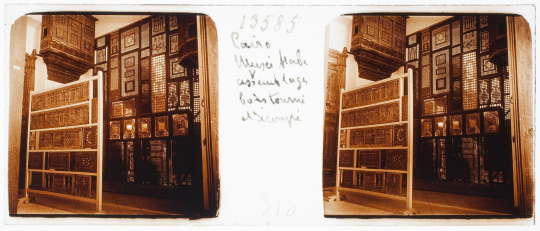 13585
Cairo
Musée Arabe
assemblages
bois tourné
et découpé
310